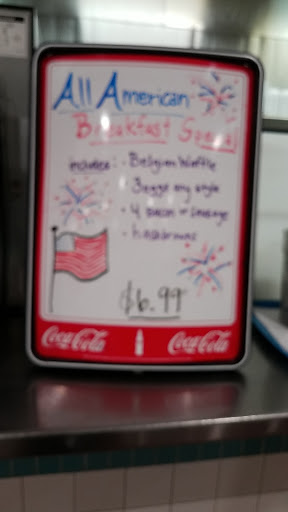 All American
Breakfast Special
includes: - Belgian Waffle
- 3 eggs any style
- 4 bacon or sausage
- hashbrowns
$6.99
Coca-Cola Coca-Cola